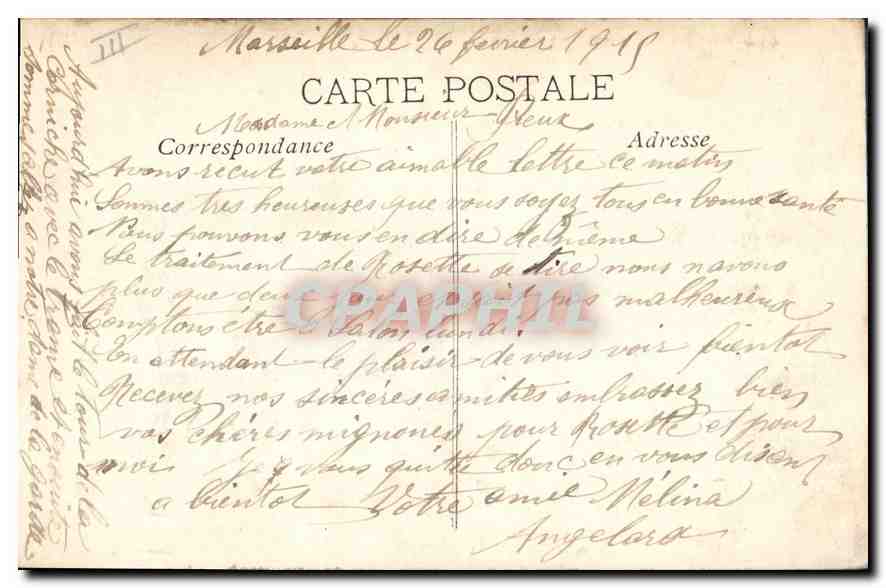 III
Marseille le 26 fevrier 1915
CARTE POSTALE
Madame Monsieur
Correspondance
Adresse
Avons recut votre aimable lettre ce matin
Sommes tres heureuses que vous soyez tous en bonne santé
Nous pouvons vous en dire de même
Le traitement de Rosette se tire nous n'avons
plus que deux pas malheureux
Comptons être Salon lundi
En attendant le plaisir de vous voir bientot
Recevez nos sincéres amitiés embrassez bien
vos chéres mignones pour Rosette et pour
moi Je vous quitte donc en vous disent
a bientot Votre amie Mélina
Angelard
Aujourd'hui avons fait le tour de la
Corniche avec le trame et ensuite
sommes allez a notre dame de la garde
CPAPHIL